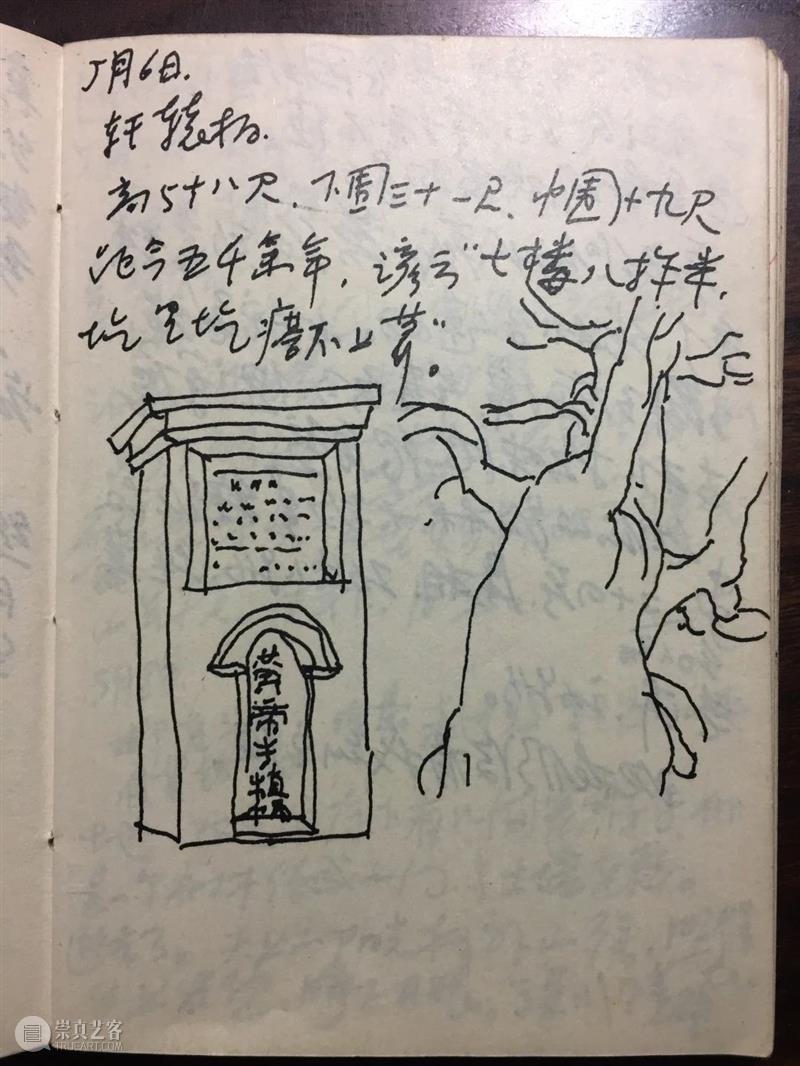 5月6日.
轩辕柏.
高5十八尺、下围三十一尺、中围十九尺
距今五千余年，谚云“七搂八拃半，
圪里圪瘩不上算”。
黄帝手植柏
崇真艺客
TRUEART.COM